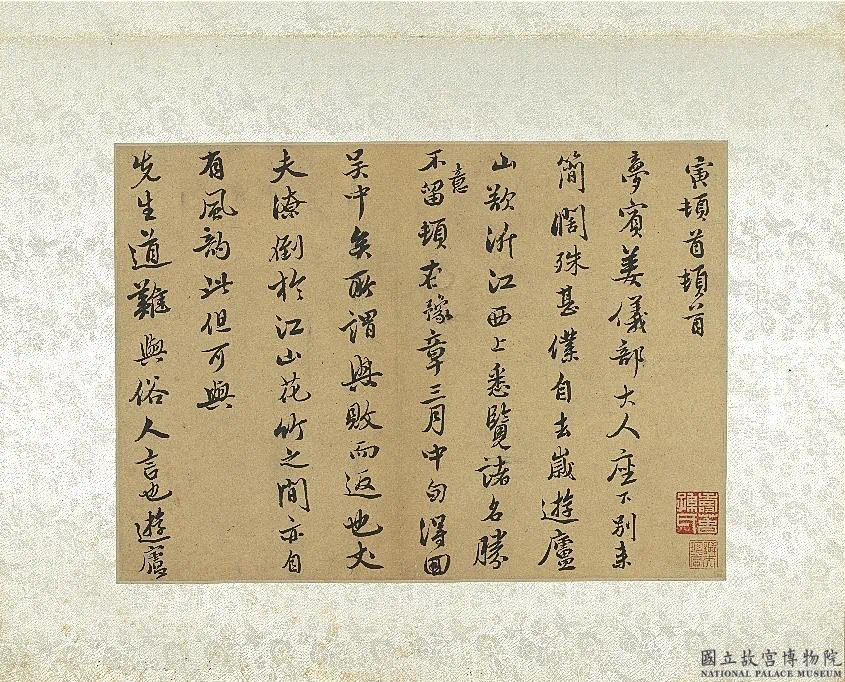 寅頓首頓首
夢賓姜儀部大人座下別來
簡闊殊甚僕自去歲遊廬
山欲泝江西上悉覽諸名勝
不意留頓豫章三月中旬得回
吳中矣所謂興敗而返也丈
夫潦倒於江山花竹之間亦自
有風韵此但可與
先生道難與俗人言也遊廬
國立故宮博物院
NATIONAL PALACE MUSEUM